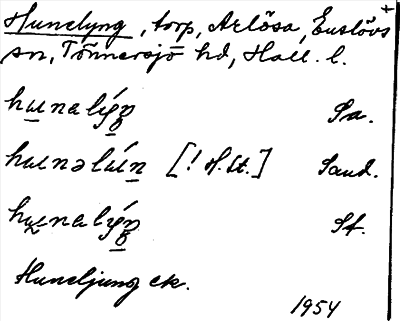 Hunelyng, torp, Arlösa, Enslövs +
sn, Tönnersjö hd, Hall. l.
hunalýŋ Sa.
hunəlún [! H.St.] Sand.
hunalýŋ Sf.
Huneljung ek.
1954